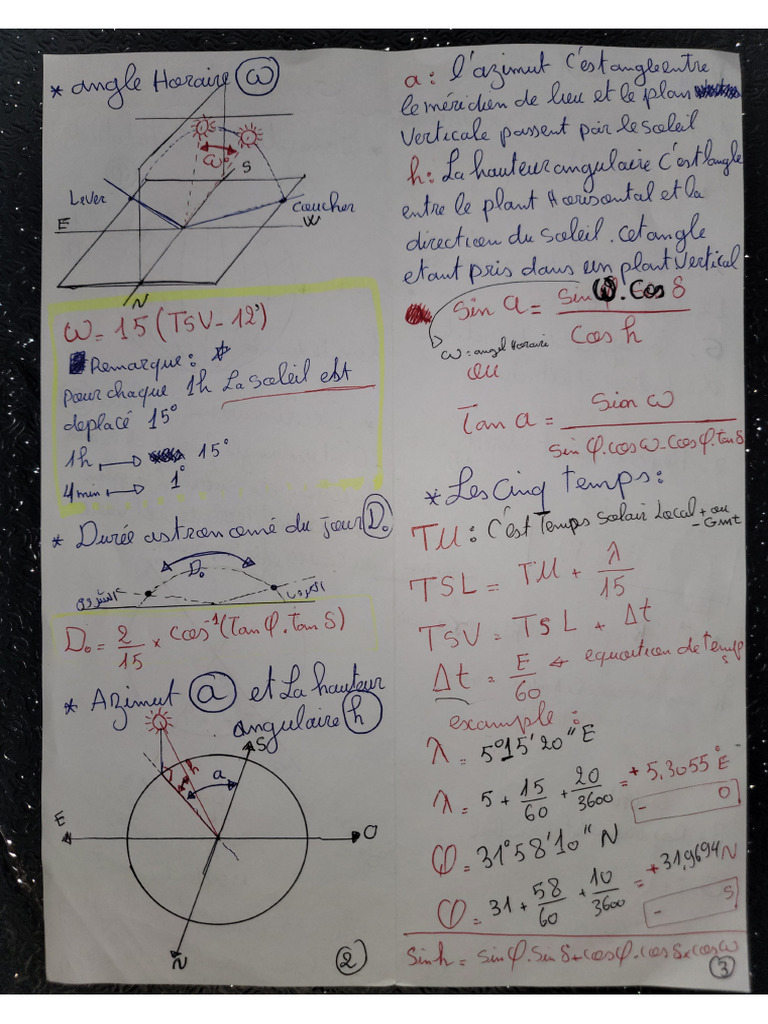 * angle Horaire ω
ω
S
Lever
coucher
E
W
N
ω = 15 (TSV - 12)
Remarque :
pour chaque 1h La soleil est
deplacé 15°
1h → 15°
4 min → 1°
* Durée astronomé du jour D₀
D₀
الشروق
الغروب
D₀ = 2/15 × cos⁻¹(Tan φ. Tan δ)
* Azimut a et La hauteur
angulaire h
S
h
a
E
O
N
2
a : l'azimut C'est angle entre
le méridien de lieu et le plan
Verticale passent par le soleil
h : La hauteur angulaire C'est l'angle
entre le plant Horisontal et la
direction du soleil. cet angle
etant pris dans un plant vertical
Sin a = sin ω. Cos δ / Cos h
ω = angel Horaire
ou
Tan a = Sin ω / sin φ. cos ω - cos φ. tan δ
* Les Cinq temps :
TU : C'est Temps Solair Local + ou - Gmt
TSL = TU + λ/15
TSV = TSL + Δt
Δt = E/60 ← equation de temps
example :
λ = 5°15'20" E
λ = 5 + 15/60 + 20/3600 = + 5,3055° E
- O
φ = 31°58'10" N
φ = 31 + 58/60 + 10/3600 = + 31,9694 N
- S
Sin h = sin φ. Sin δ + cos φ. cos δ × cos ω
3